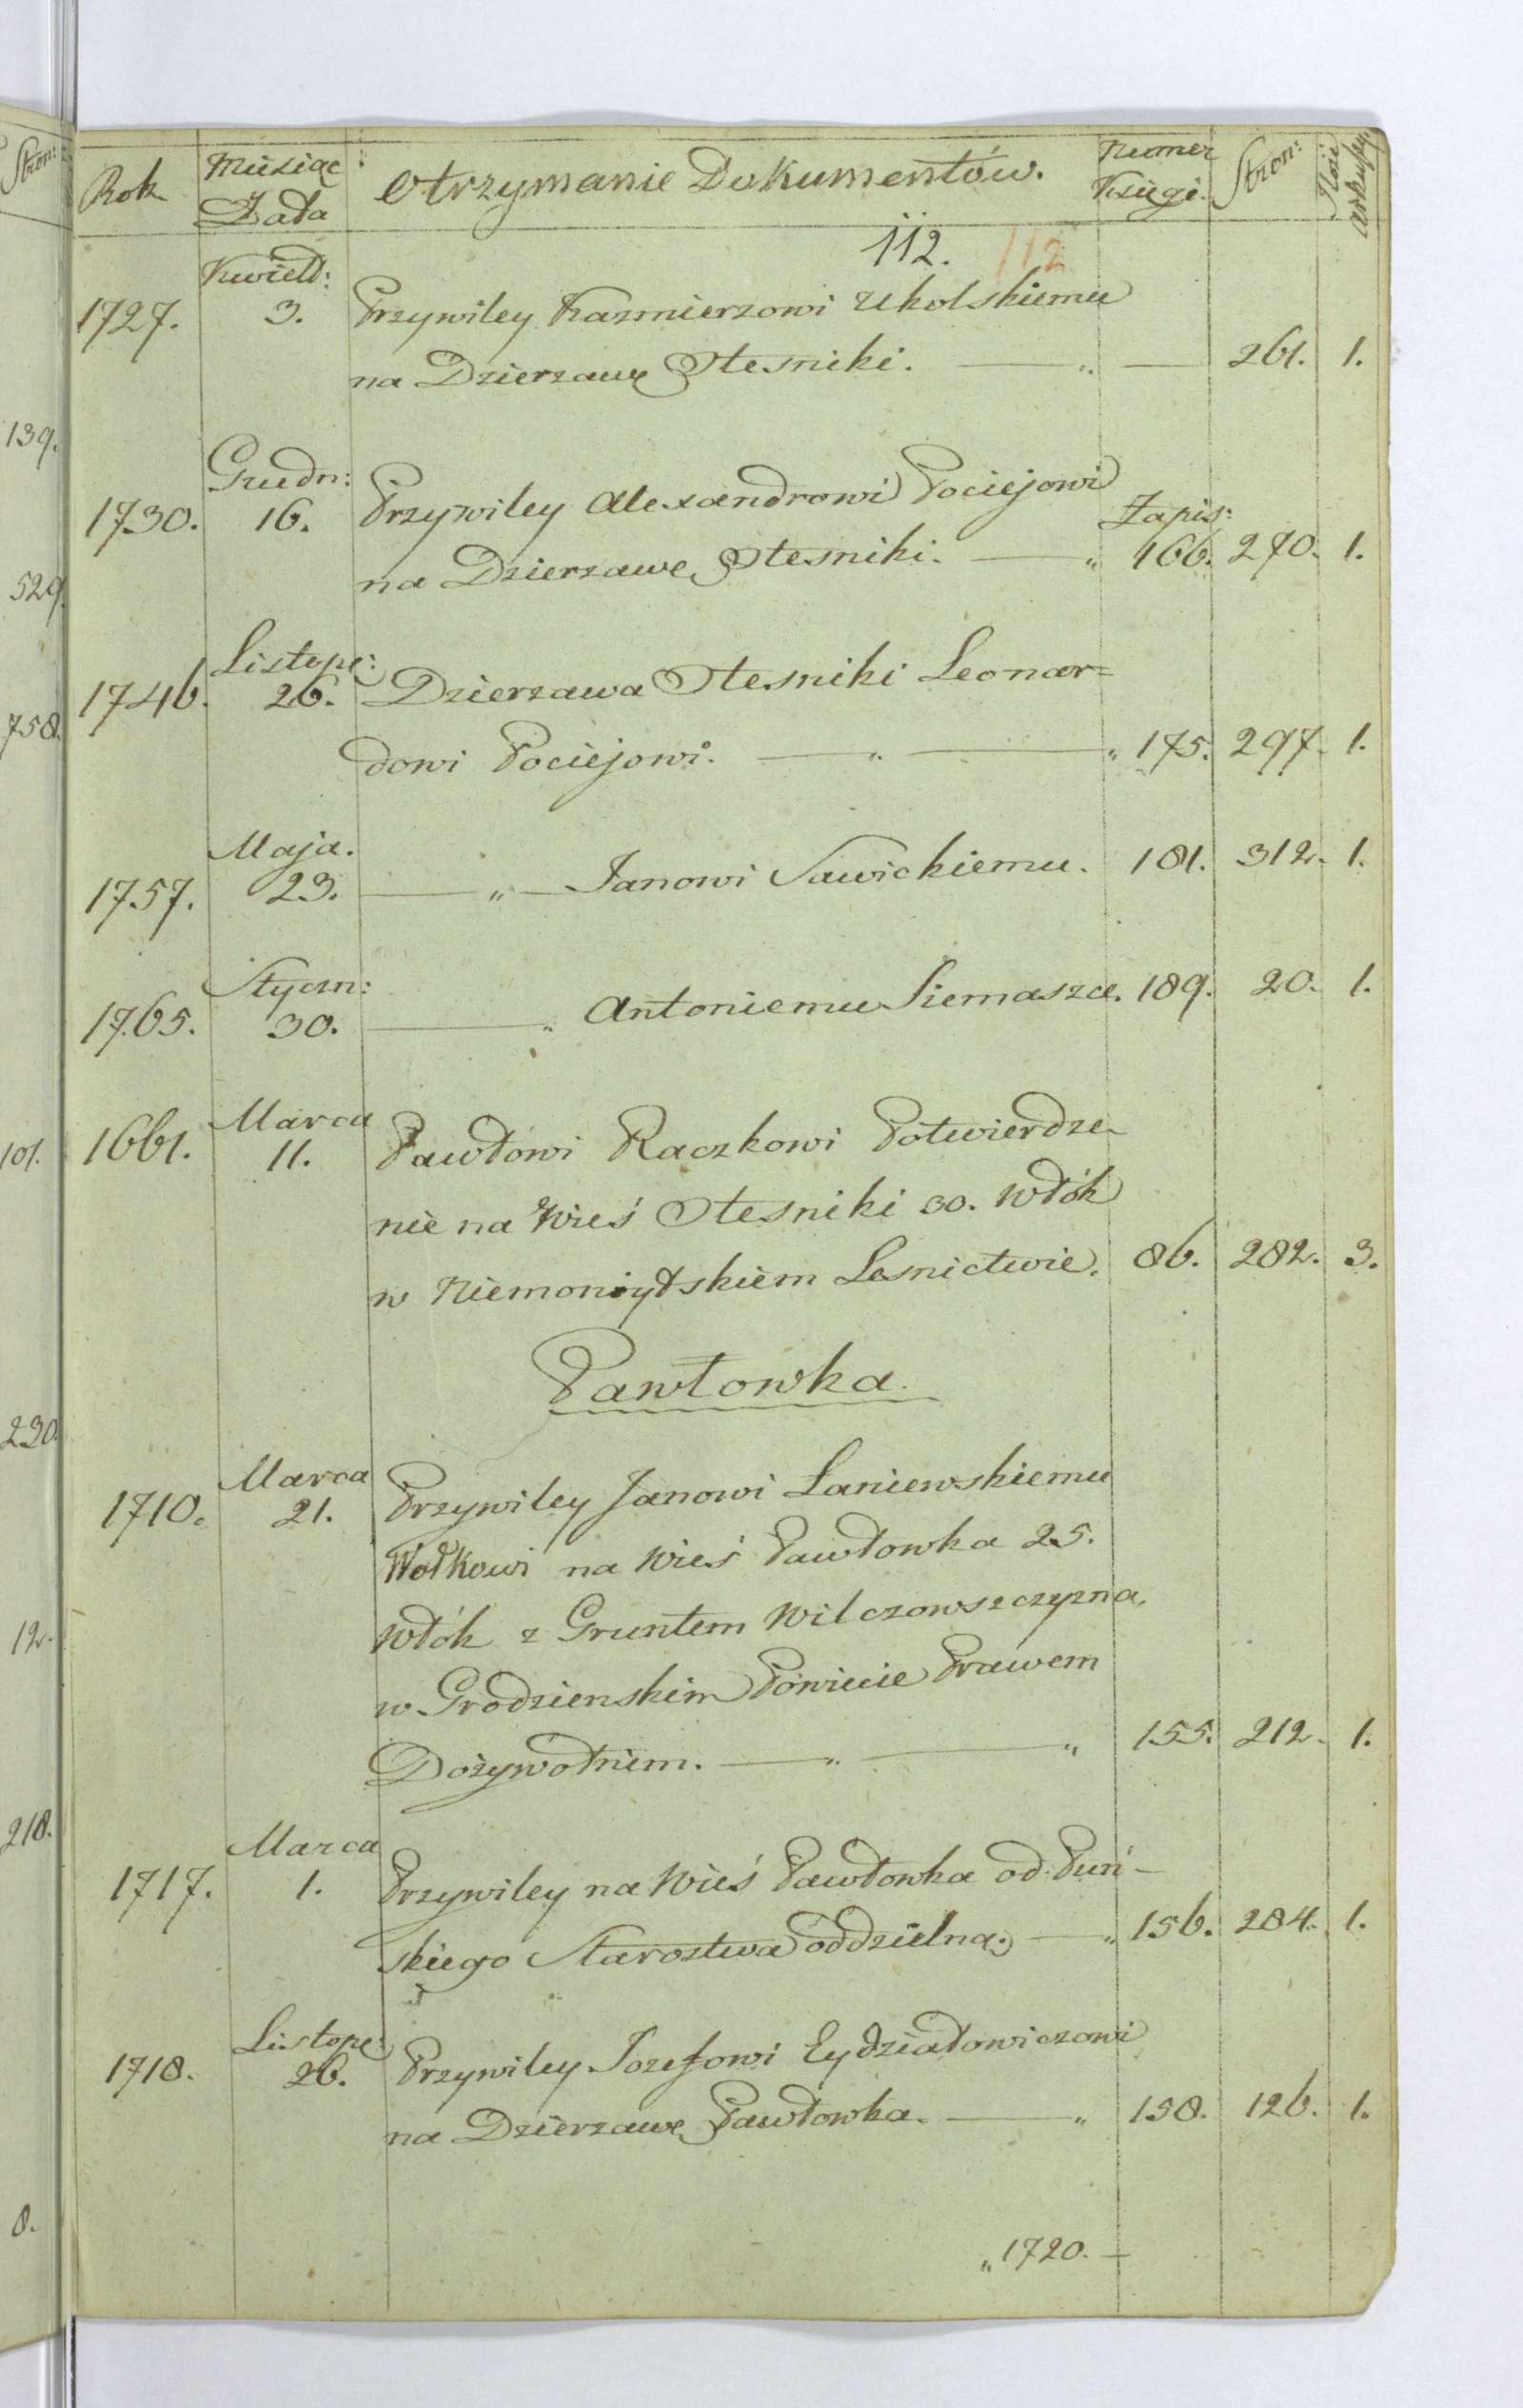 Rok Miesiąc Data Otrzymanie Dokumentów. Numer Księgi. Stron: Ilość
112. 112
Kwiet:
1727. 3. Przywiley Kazmierzowi Ukolskiemu
na Dzierzawę Olesniki. — „ — 261. 1.
Grudn:
1730. 16. Przywiley Alexandrowi Pociejowi Zapis:
na Dzierzawę Olesniki. — „ 166. 270. 1.
Listopa:
1746. 26. Dzierzawa Olesniki Leonar=
dowi Pociejowi. — „ — „ 175. 297. 1.
Maja.
1757. 23. — „ — Janowi Sawickiemu. 181. 312. 1.
Styczn:
1765. 30. — „ Antoniemu Siemaszce. 189. 20. 1.
Marca
1661. 11. Pawłowi Raczkowi Potwierdze-
nie na Wieś Olesniki 30. Włók
w Niemonoytskiem Lesnictwie. 86. 282. 3.
Pawłowka.
Marca
1710. 21. Przywiley Janowi Łaniewskiemu
Wołkowi na Wieś Pawłowka 25.
Włók z Gruntem Wilczowszczyzna,
w Grodzienskim Powiecie Prawem
Dożywotniem. — „ — „ 155. 212. 1.
Marca
1717. 1. Przywiley na Wieś Pawłowka od Puń-
skiego Starostwa oddzielną. — „ 156. 284. 1.
Listopa:
1718. 26. Przywiley Jozefowi Eydziatowiczowi
na Dzierzawę Pawłowka. — „ 158. 126. 1.
„ 1720. —
Stron:
139.
529.
758.
101.
230.
12.
218.
8.